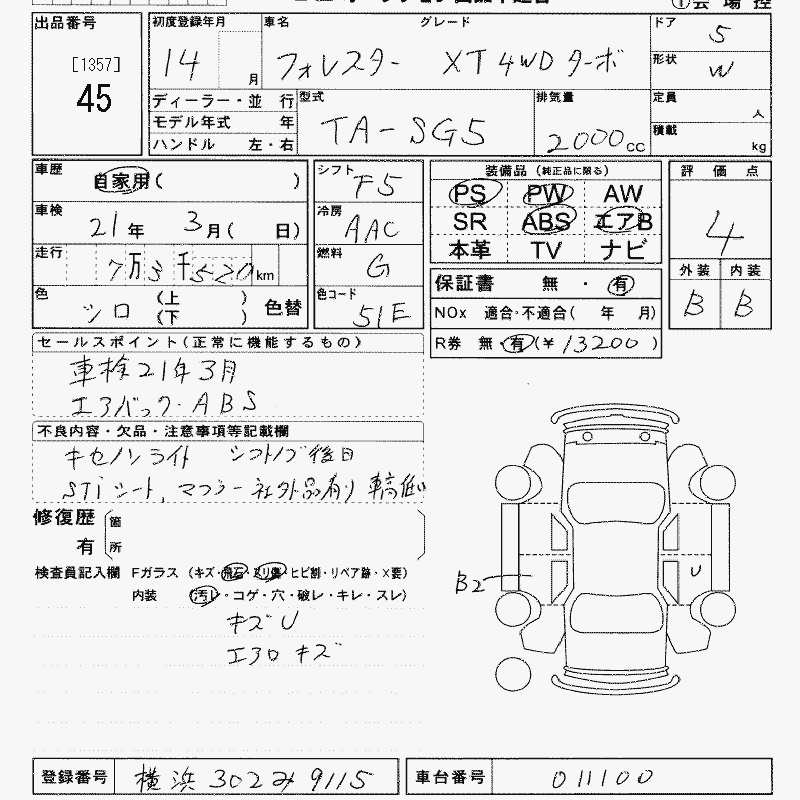 出品番号
[1357]
45
初度登録年月 車名 グレード ドア
14 月 フォレスター XT 4WD ターボ 5
形状 W
ディーラー・並 行 型式 排気量 定員
モデル年式 年 TA-SG5 2000cc 人
ハンドル 左・右 積載 kg
車歴 自家用( ) シフト F5
装備品 (純正品に限る) 評 価 点
PS PW AW 4
車検 21年 3月( 日) 冷房 AAC
SR ABS エアB
走行 7万3千520km 燃料 G
本革 TV ナビ 外装 内装
保証書 無 ・ 有 B B
色 シロ (上 ) (下 ) 色替 色コード 51E
NOx 適合・不適合( 年 月)
R券 無・有(¥ 13200 )
セールスポイント(正常に機能するもの)
車検21年3月
エアバック・ABS
不良内容・欠品・注意事項等記載欄
キセノンライト シフトノブ後日
STiシート、マフラー社外品有り 車高低
修復歴 箇
有 所
検査員記入欄 Fガラス (キズ・飛石・スリ傷・ヒビ割・リペア跡・X要)
内装 (汚レ・コゲ・穴・破レ・キレ・スレ)
キズU
エアロ キズ
B2 U
登録番号 横浜 302 み 9115 車台番号 011100